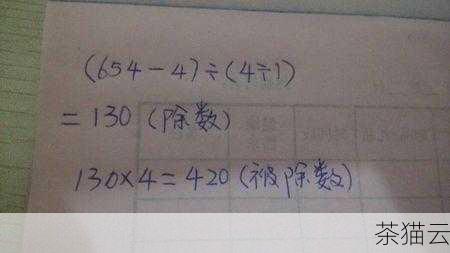 (654-4)÷(4÷1)
=130(除数)
130×4=420(被除数)
茶猫云